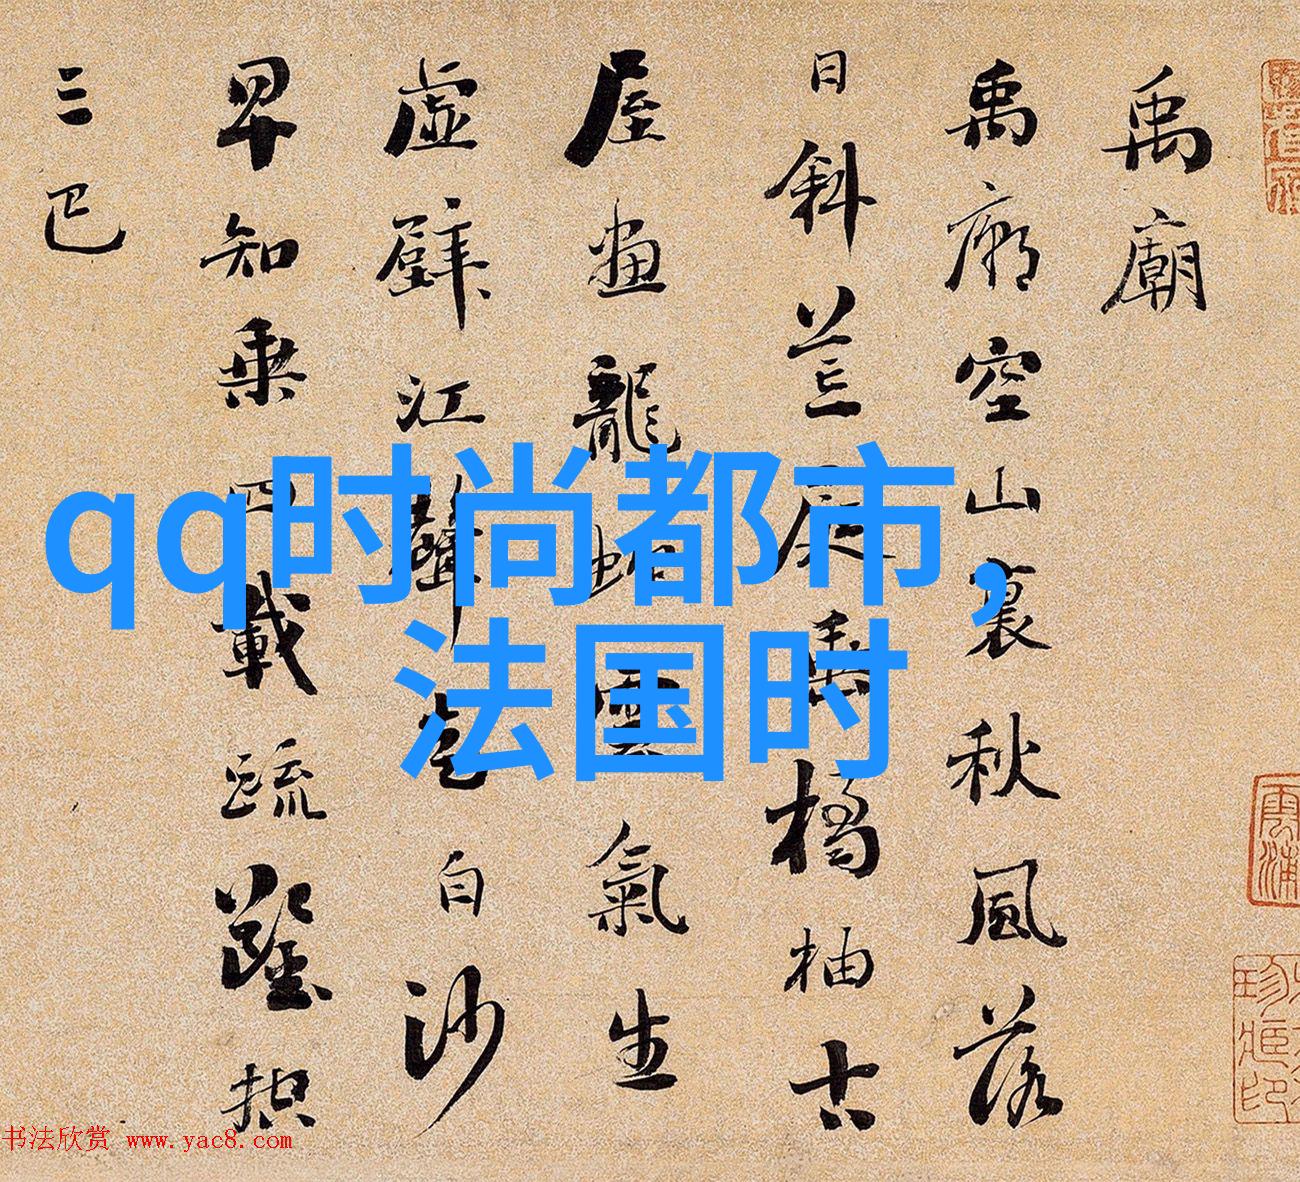 禹廟
禹廟空山裏秋風落
日斜荒庭垂橘柚古
屋畫龍蛇雲氣生
虛壁江聲走白沙
早知乘四載疏鑿控
三巴
qq时尚都市,
法国时
书法欣赏 www.yac8.com